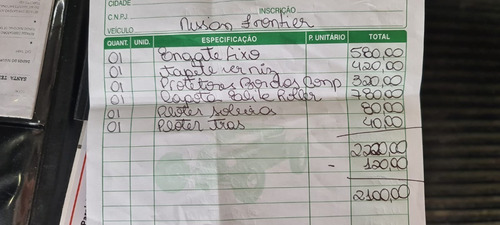 CIDADE
C.N.P.J INSCRIÇÃO
VEÍCULO Nissan Frontier
QUANT. UNID. ESPECIFICAÇÃO P. UNITÁRIO TOTAL
01 Engate fixo 580,00
01 tapete verniz 420,00
01 Protetor Bordas 320,00
01 Capota 780,00
01 soleiras 80,00
01 tras 40,00
2220,00
- 120,00
2100,00